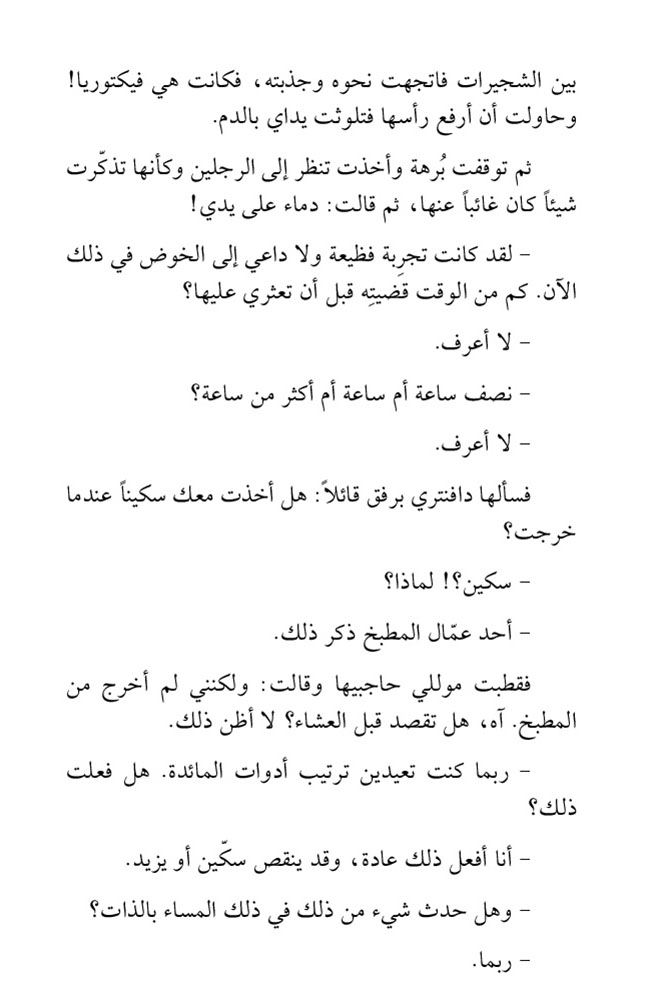 بين الشجيرات فاتجهت نحوه وجذبته، فكانت هي فيكتوريا!
وحاولت أن أرفع رأسها فتلوثت يداي بالدم.
ثم توقفت بُرهة وأخذت تنظر إلى الرجلين وكأنها تذكّرت
شيئاً كان غائباً عنها، ثم قالت: دماء على يدي!
- لقد كانت تجرِبة فظيعة ولا داعي إلى الخوض في ذلك
الآن. كم من الوقت قضيتِه قبل أن تعثري عليها؟
- لا أعرف.
- نصف ساعة أم ساعة أم أكثر من ساعة؟
- لا أعرف.
فسألها دافنتري برفق قائلاً: هل أخذت معك سكيناً عندما
خرجت؟
- سكين؟! لماذا؟
- أحد عمّال المطبخ ذكر ذلك.
فقطبت موللي حاجبيها وقالت: ولكنني لم أخرج من
المطبخ. آه، هل تقصد قبل العشاء؟ لا أظن ذلك.
- ربما كنت تعيدين ترتيب أدوات المائدة. هل فعلت
ذلك؟
- أنا أفعل ذلك عادة، وقد ينقص سكّين أو يزيد.
- وهل حدث شيء من ذلك في ذلك المساء بالذات؟
- ربما.